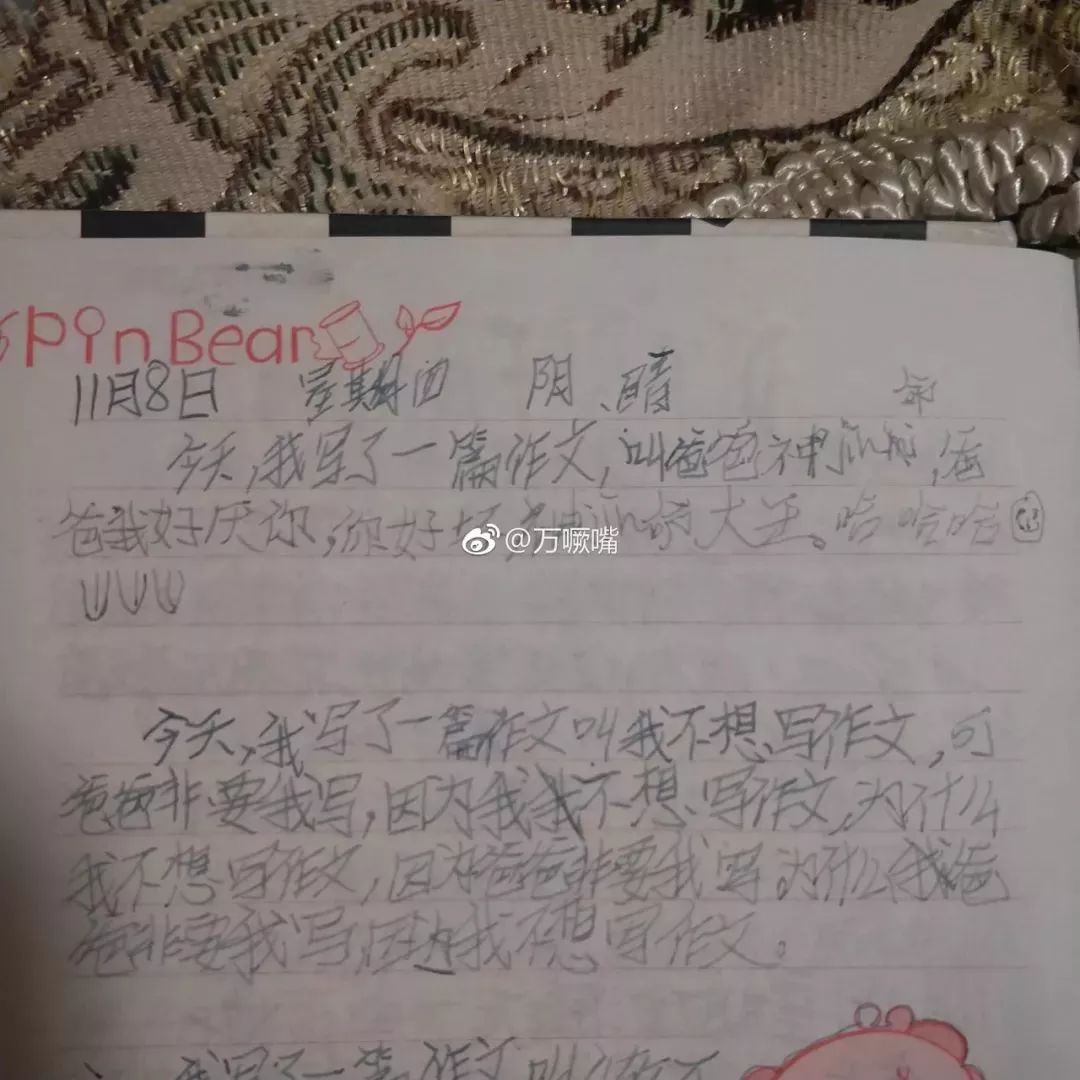 pin Bear
11月8日 星期四 阴、晴
今天,我写了一篇作文,叫爸爸神,爸
爸我好厌你,你好 大王。哈哈哈
@万噘嘴
今天,我写了一篇作文叫我不想写作文,可
爸爸非要我写,因为我我不想写作文,为什么
我不想写作文,因为爸爸非要我写为什么我爸
爸非要我写,因为我不想写作文。
我写了一篇作文叫